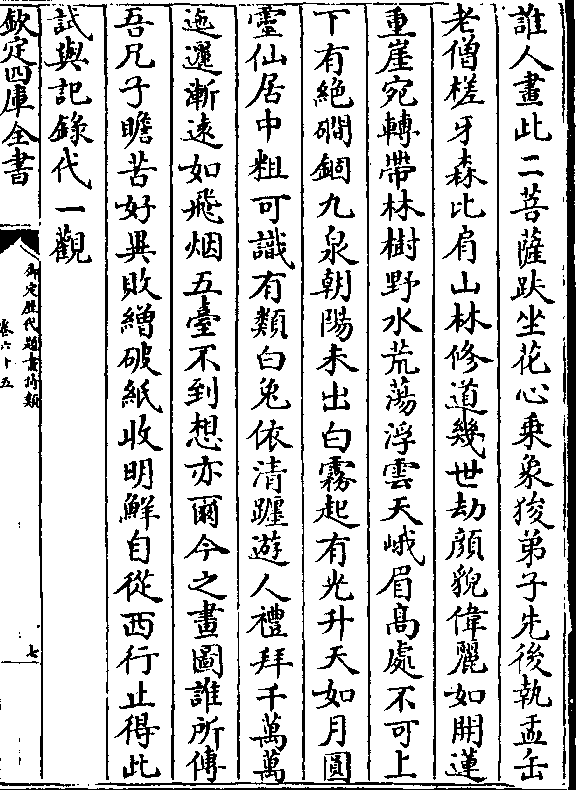 誰人畫此二菩薩趺坐花心乗象狻弟子先後執盂缶
老僧槎牙森比肩山林修道幾世劫顔貌偉麗如開蓮
重崖宛轉帶林樹野水荒蕩浮雲天峨眉髙處不可上
下有絶磵錮九泉朝陽未出白霧起有光升天如月圓
靈仙居中粗可識有類白兔依清躔遊人禮拜千萬萬
迤邐漸逺如飛烟五臺不到想亦爾今之畫圖誰所傳
吾凡子瞻苦好異敗繒破紙收明鮮自從西行止得此
試與記録代一觀
欽定四庫全書
御定歴代題畫詩類
卷六十五
七